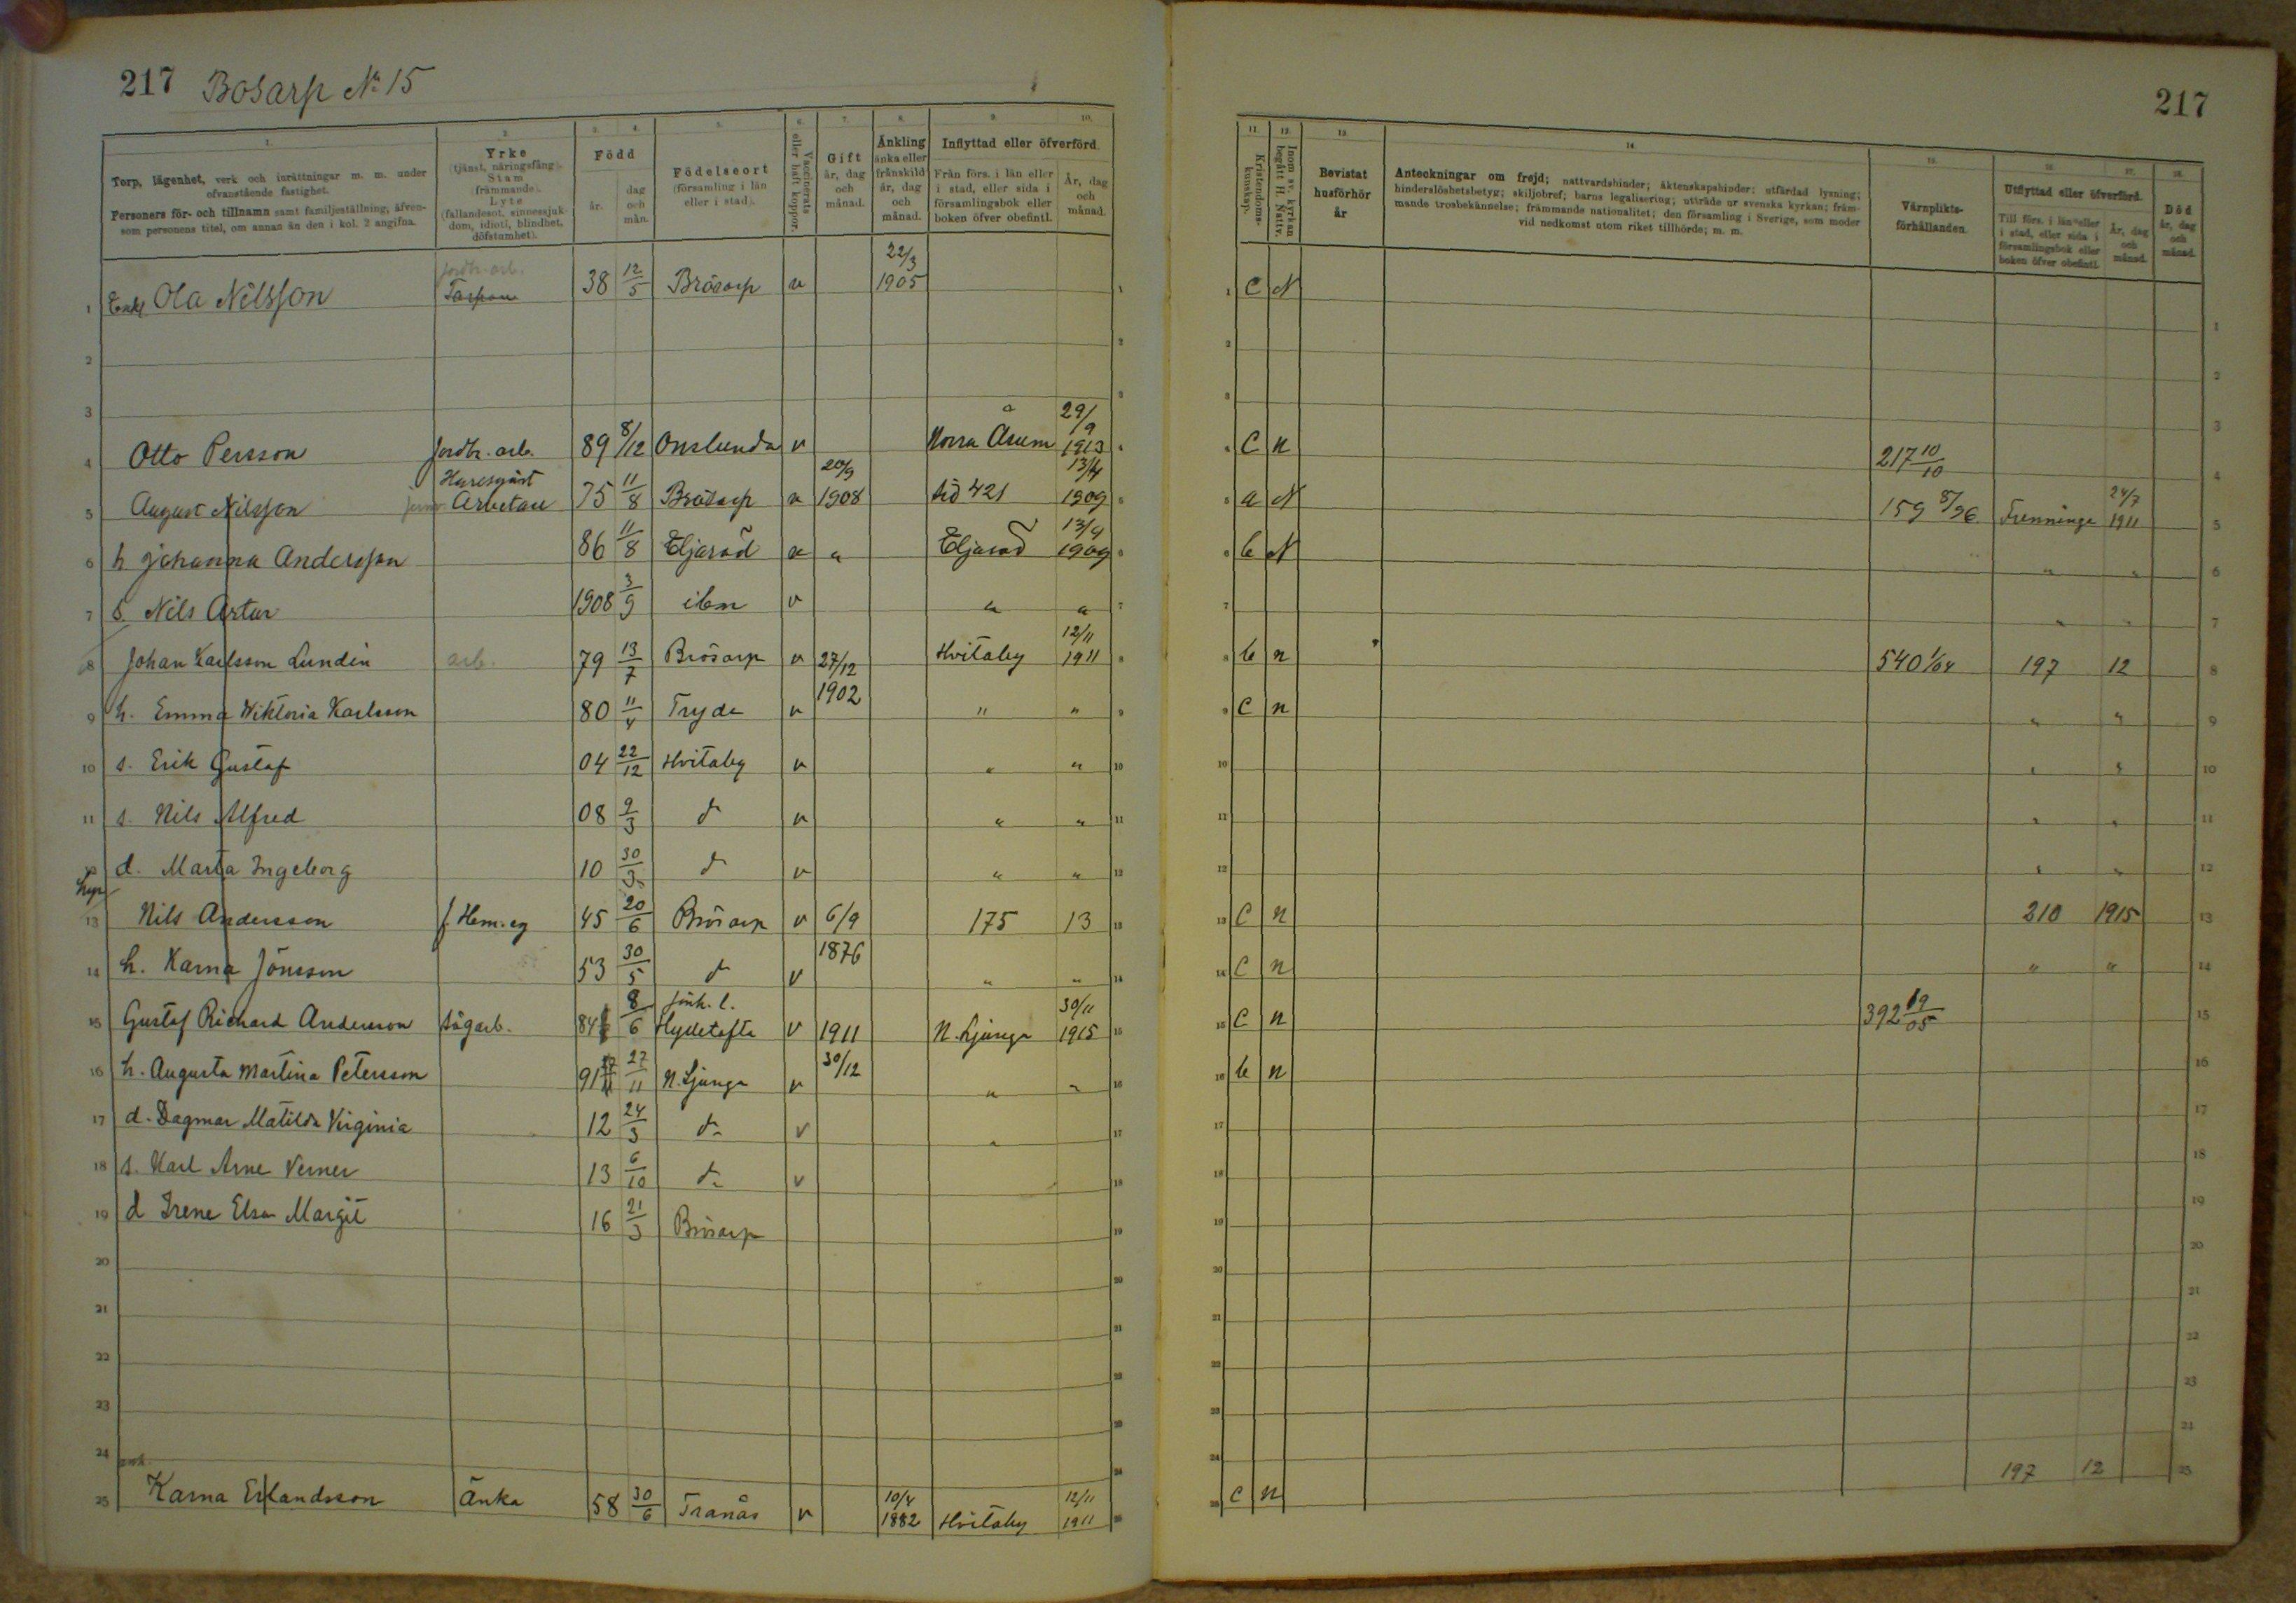 217 Bosarp No 15
217
1. 2. 3. 4. 5. 6. 7. 8. 9. 10.
Torp, lägenhet, verk och inrättningar m. m. under ofvanstående fastighet.
Personers för- och tillnamn samt familjeställning, äfvensom personens titel, om annan än den i kol. 2 angifna.
Yrke (tjänst, näringsfång). Stam (främmande). Lyte (fallandesot, sinnessjukdom, idioti, blindhet, döfstumhet).
Född år. dag och mån.
Födelseort (församling i län eller i stad).
Vaccinerats eller haft koppor.
Gift år, dag och månad.
Änkling änka eller frånskild år, dag och månad.
Inflyttad eller öfverförd.
Från förs. i län eller i stad, eller sida i församlingsbok eller boken öfver obefintl.
År, dag och månad.
11. 12. 13. 14. 15. 16. 17. 18.
Kristendomskunskap.
Inom sv. kyrkan begått H. Nattv.
Bevistat husförhör år
Anteckningar om frejd; nattvardshinder; äktenskapshinder: utfärdad lysning; hinderslöshetsbetyg; skiljobref; barns legalisering; utträde ur svenska kyrkan; främmande trosbekännelse; främmande nationalitet; den församling i Sverige, som moder vid nedkomst utom riket tillhörde; m. m.
Värnplikts-förhållanden.
Utflyttad eller öfverförd.
Till förs. i län eller i stad, eller sida i församlingsbok eller boken öfver obefintl.
År, dag och månad.
Död år, dag och månad.
1 Enkl Ola Nilsson Jordbr. arb. 38 12/5 Brösarp v 22/3 1905 1 C N 1
2 2 2 2
3 3 3 3
4 Otto Persson Jordbr. arb. 89 8/12 Onslunda v Norra Åsum 29/9 1913 4 C n 217 10/10 4
5 August Nilsson Hyresgäst Arbetare 75 11/8 Brösarp v 20/9 1908 sid 421 13/4 1909 5 a N 159 8/96 Frenninge 24/7 1911 5
6 h Johanna Andersson 86 11/8 Eljaröd v " Eljaröd 13/4 1909 6 b N " " 6
7 s. Nils Artur 1908 3/9 ibm v " " 7 7 " " 7
8 Johan Karlsson Lundin arb. 79 13/7 Brösarp v 27/12 1902 Hvitaby 12/11 1911 8 b n 540 1/04 197 12 8
9 h. Emma Wiktoria Karlsson 80 11/4 Tryde v " " 9 C n " " 9
10 s. Erik Gustaf 04 22/12 Hvitaby v " " 10 10 " " 10
11 s. Nils Alfred 08 9/3 do v " " 11 11 " " 11
12 d. Marta Ingeborg 10 30/3 do v " " 12 12 " " 12
13 Nils Andersson f. Hem. eg 45 20/6 Brösarp v 6/9 1876 175 13 13 C n 210 1915 13
14 h. Karna Jönsson 53 30/5 do v " " 14 C n " " 14
15 Gustaf Richard Andersson sågarb. 84 8/6 Jönk. l. Hydetofta v 1911 30/12 N. Ljunga 30/11 1915 15 C n 392 19/05 15
16 h. Augusta Martina Petersson 91 27/11 N. Ljunga v " " 16 b n 16
17 d. Dagmar Matilda Virginia 12 24/3 do v " 17 17 17
18 s. Karl Arne Verner 13 6/10 do v 18 18 18
19 d Irene Elsa Margit 16 21/3 Brösarp 19 19 19
20 20 20 20
21 21 21 21
22 22 22 22
23 23 23 23
24 24 24 24
25 Karna Erlandsson Änka 58 30/6 Tranås v 10/4 1882 Hvitaby 12/11 1911 25 C n 197 12 25